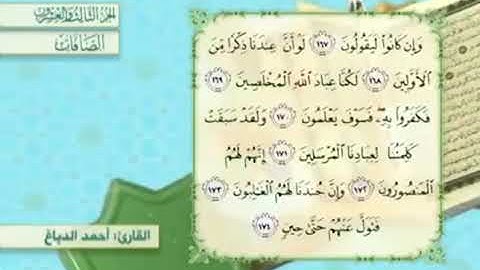 الجزء الثالث والعشرون
الصافات
وَإِن كَانُوا۟ لَيَقُولُونَ ﴿١٦٧﴾ لَوْ أَنَّ عِندَنَا ذِكْرًا مِّنَ
ٱلْأَوَّلِينَ ﴿١٦٨﴾ لَكُنَّا عِبَادَ ٱللَّهِ ٱلْمُخْلَصِينَ ﴿١٦٩﴾
فَكَفَرُوا۟ بِهِۦ فَسَوْفَ يَعْلَمُونَ ﴿١٧٠﴾ وَلَقَدْ سَبَقَتْ
كَلِمَتُنَا لِعِبَادِنَا ٱلْمُرْسَلِينَ ﴿١٧١﴾ إِنَّهُمْ لَهُمُ
ٱلْمَنصُورُونَ ﴿١٧٢﴾ وَإِنَّ جُندَنَا لَهُمُ ٱلْغَٰلِبُونَ ﴿١٧٣﴾
فَتَوَلَّ عَنْهُمْ حَتَّىٰ حِينٍ ﴿١٧٤﴾
القارئ: أحمد الدباغ